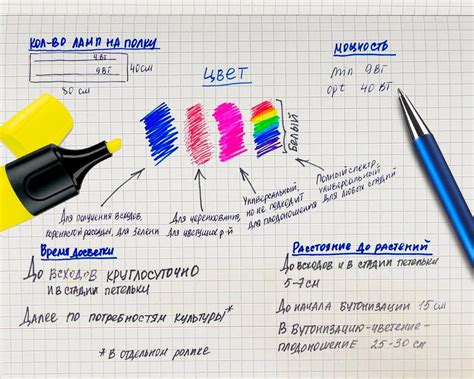 КОЛ-ВО ЛАМП НА ПОЛКУ
9 ВТ
9 ВТ
40СМ
80 СМ
ЦВЕТ
МОЩНОСТЬ
min 9ВТ
opt 40 ВТ
БЕЛЫЙ
Для получения всходов,
коренастой рассады, для зелени
Для черенкования,
для цветущих р-й
Универсальный,
но не подходит
для плодоношения
Полный спектр,
универсальный
для любых стадий
Время досветки
До всходов круглосуточно
и в стадии петельки
Далее по потребностям культуры*
*в отдельном ролике
Расстояние до растений
До всходов и в стадии петельки
5-7см
До начала бутонизации 15 см
В бутонизацию-цветение-
плодоношение 25-30 см